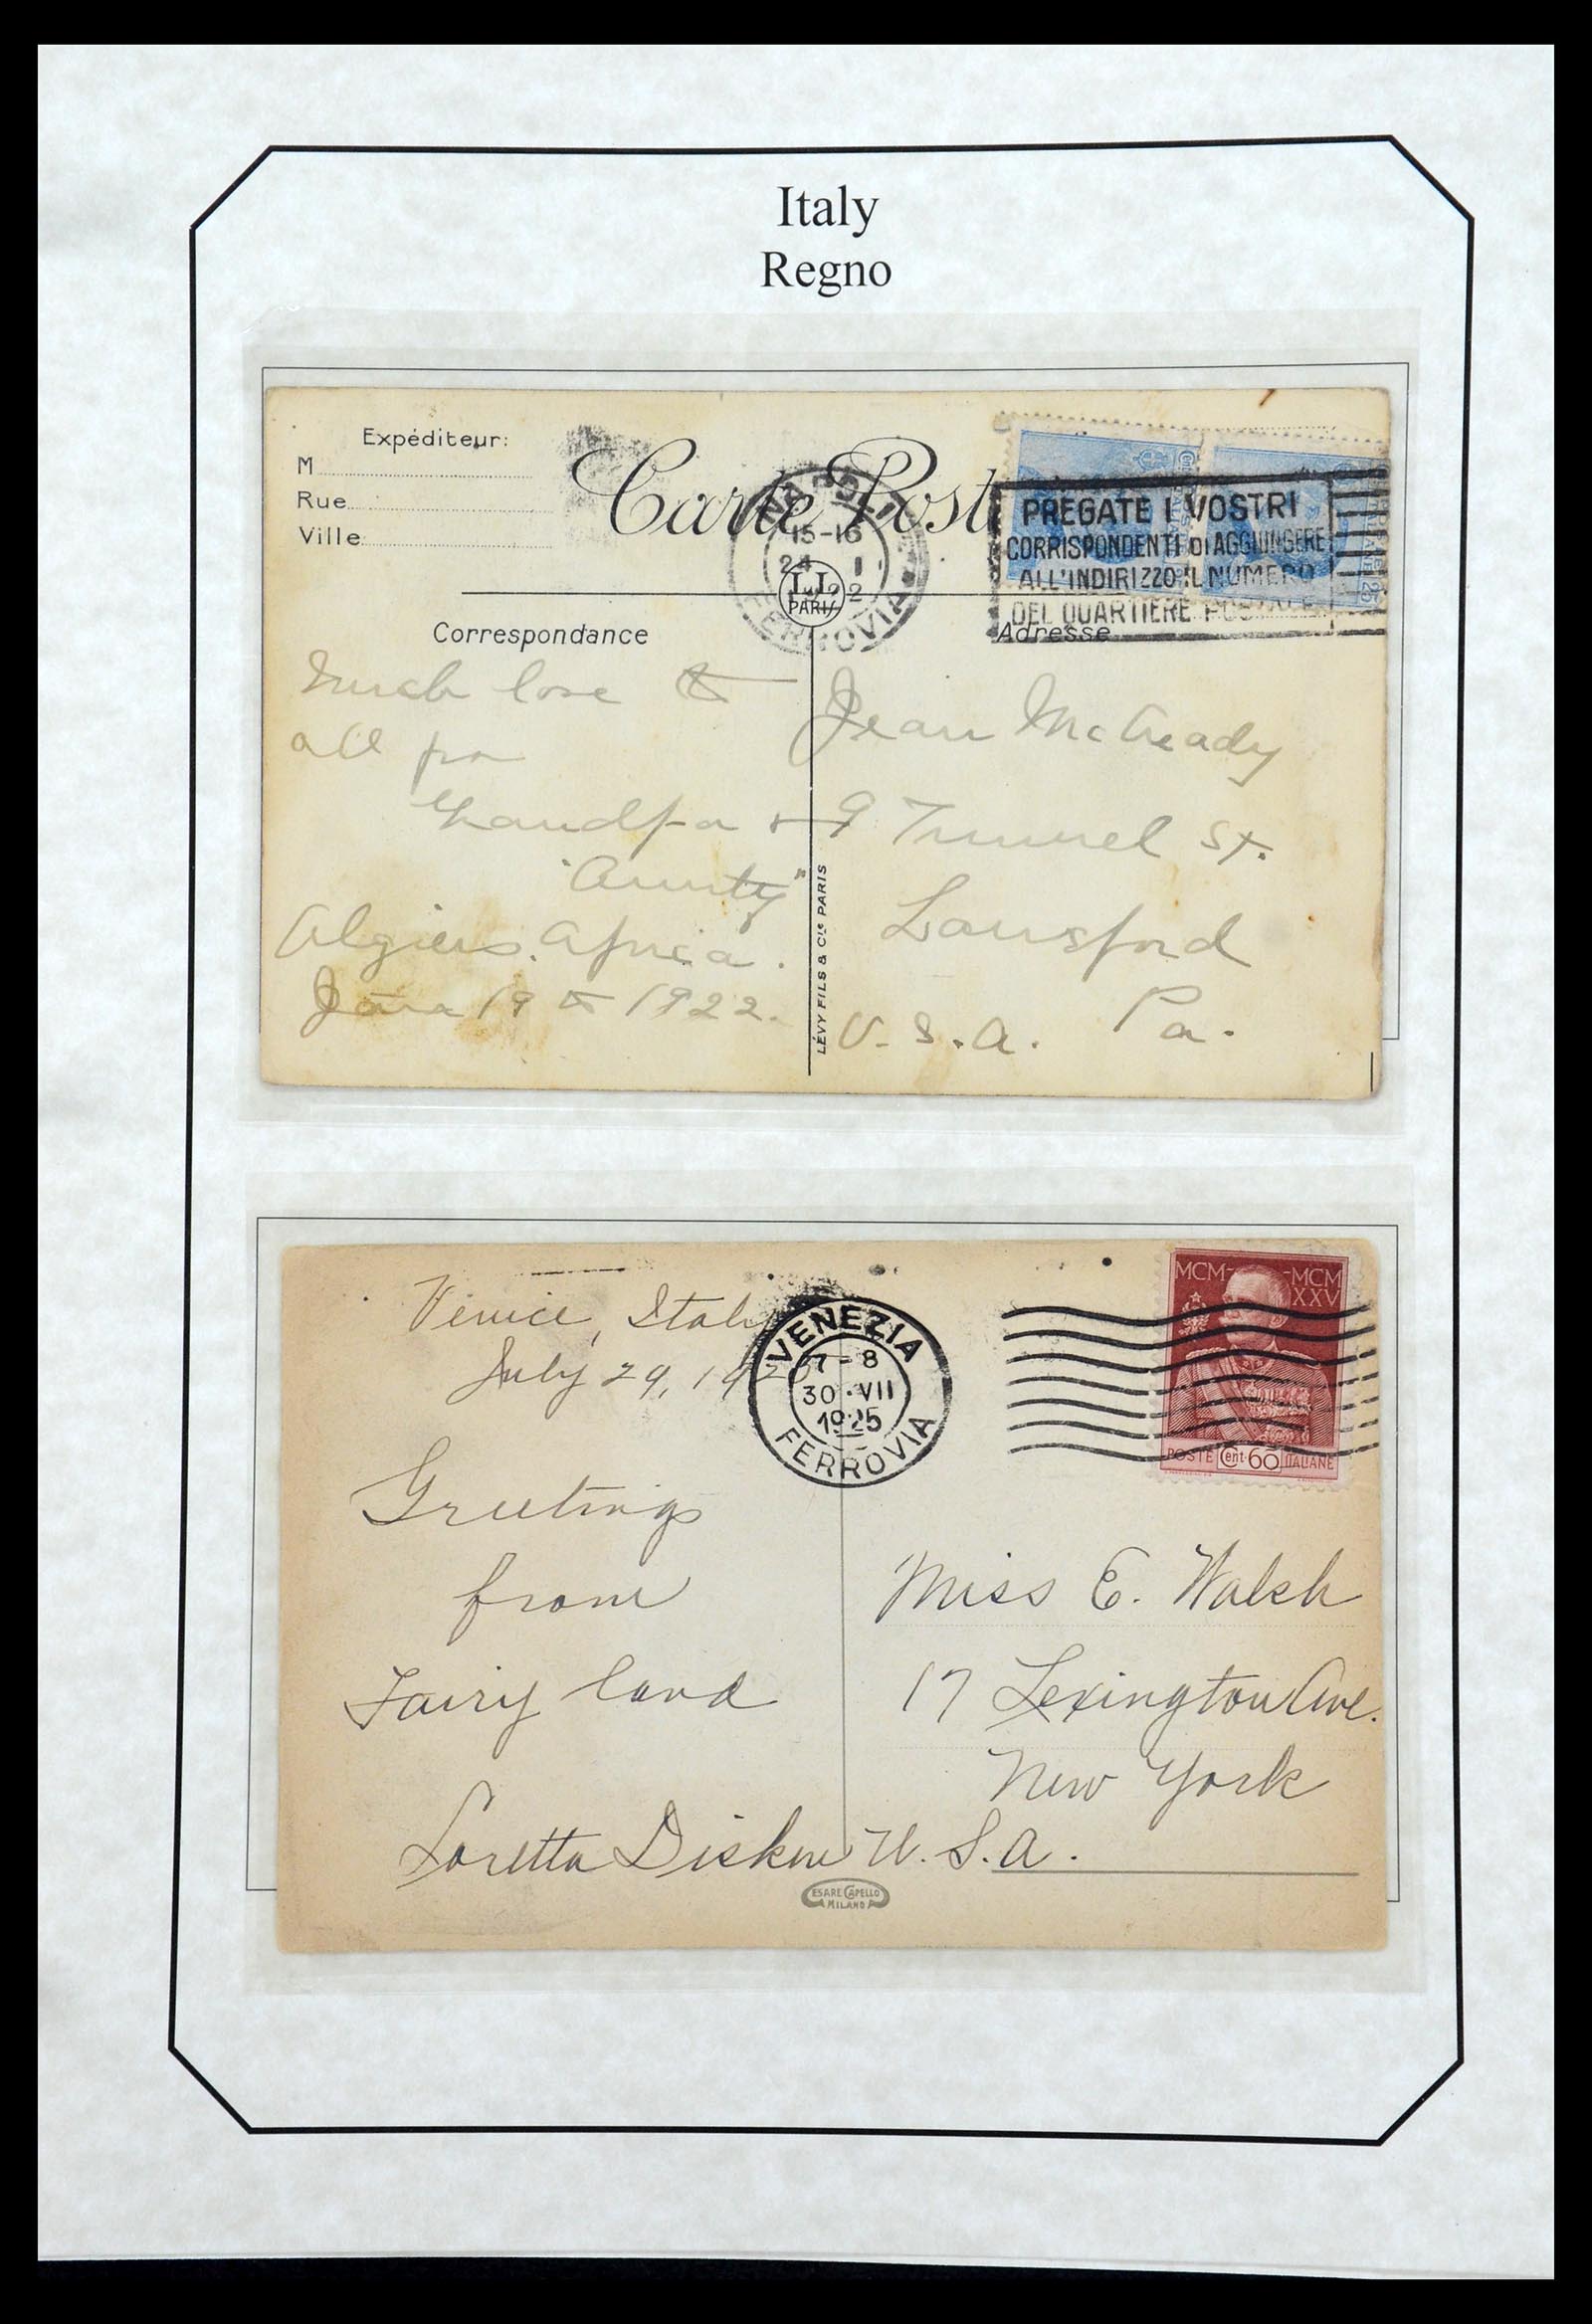 Italy
Regno
Expéditeur:
M
Rue
Ville
Carte Post
NAPOLI
15-16
24 I
1922
FERROVIA
L.L.
PARIS
PREGATE I VOSTRI
CORRISPONDENTI DI AGGIUNGERE
ALL'INDIRIZZO IL NUMERO
DEL QUARTIERE POSTALE
Correspondance
Adresse
Much love to
all from
Grandpa +
"Aunty"
Algiers. Africa.
Jan 19th 1922.
Jean McCready
9 Tunnel St.
Lansford
Pa.
U.S.A.
LÉVY FILS & Cie PARIS
Venice, Italy
July 29, 1925
VENEZIA
7-8
30·VII
1925
FERROVIA
MCM MCM
XXV
POSTE Cent 60 ITALIANE
Greetings
from
Fairy land
Loretta
Miss E. Walsh
17 Lexington Ave.
New York
U.S.A.
CESARE CAPELLO
MILANO